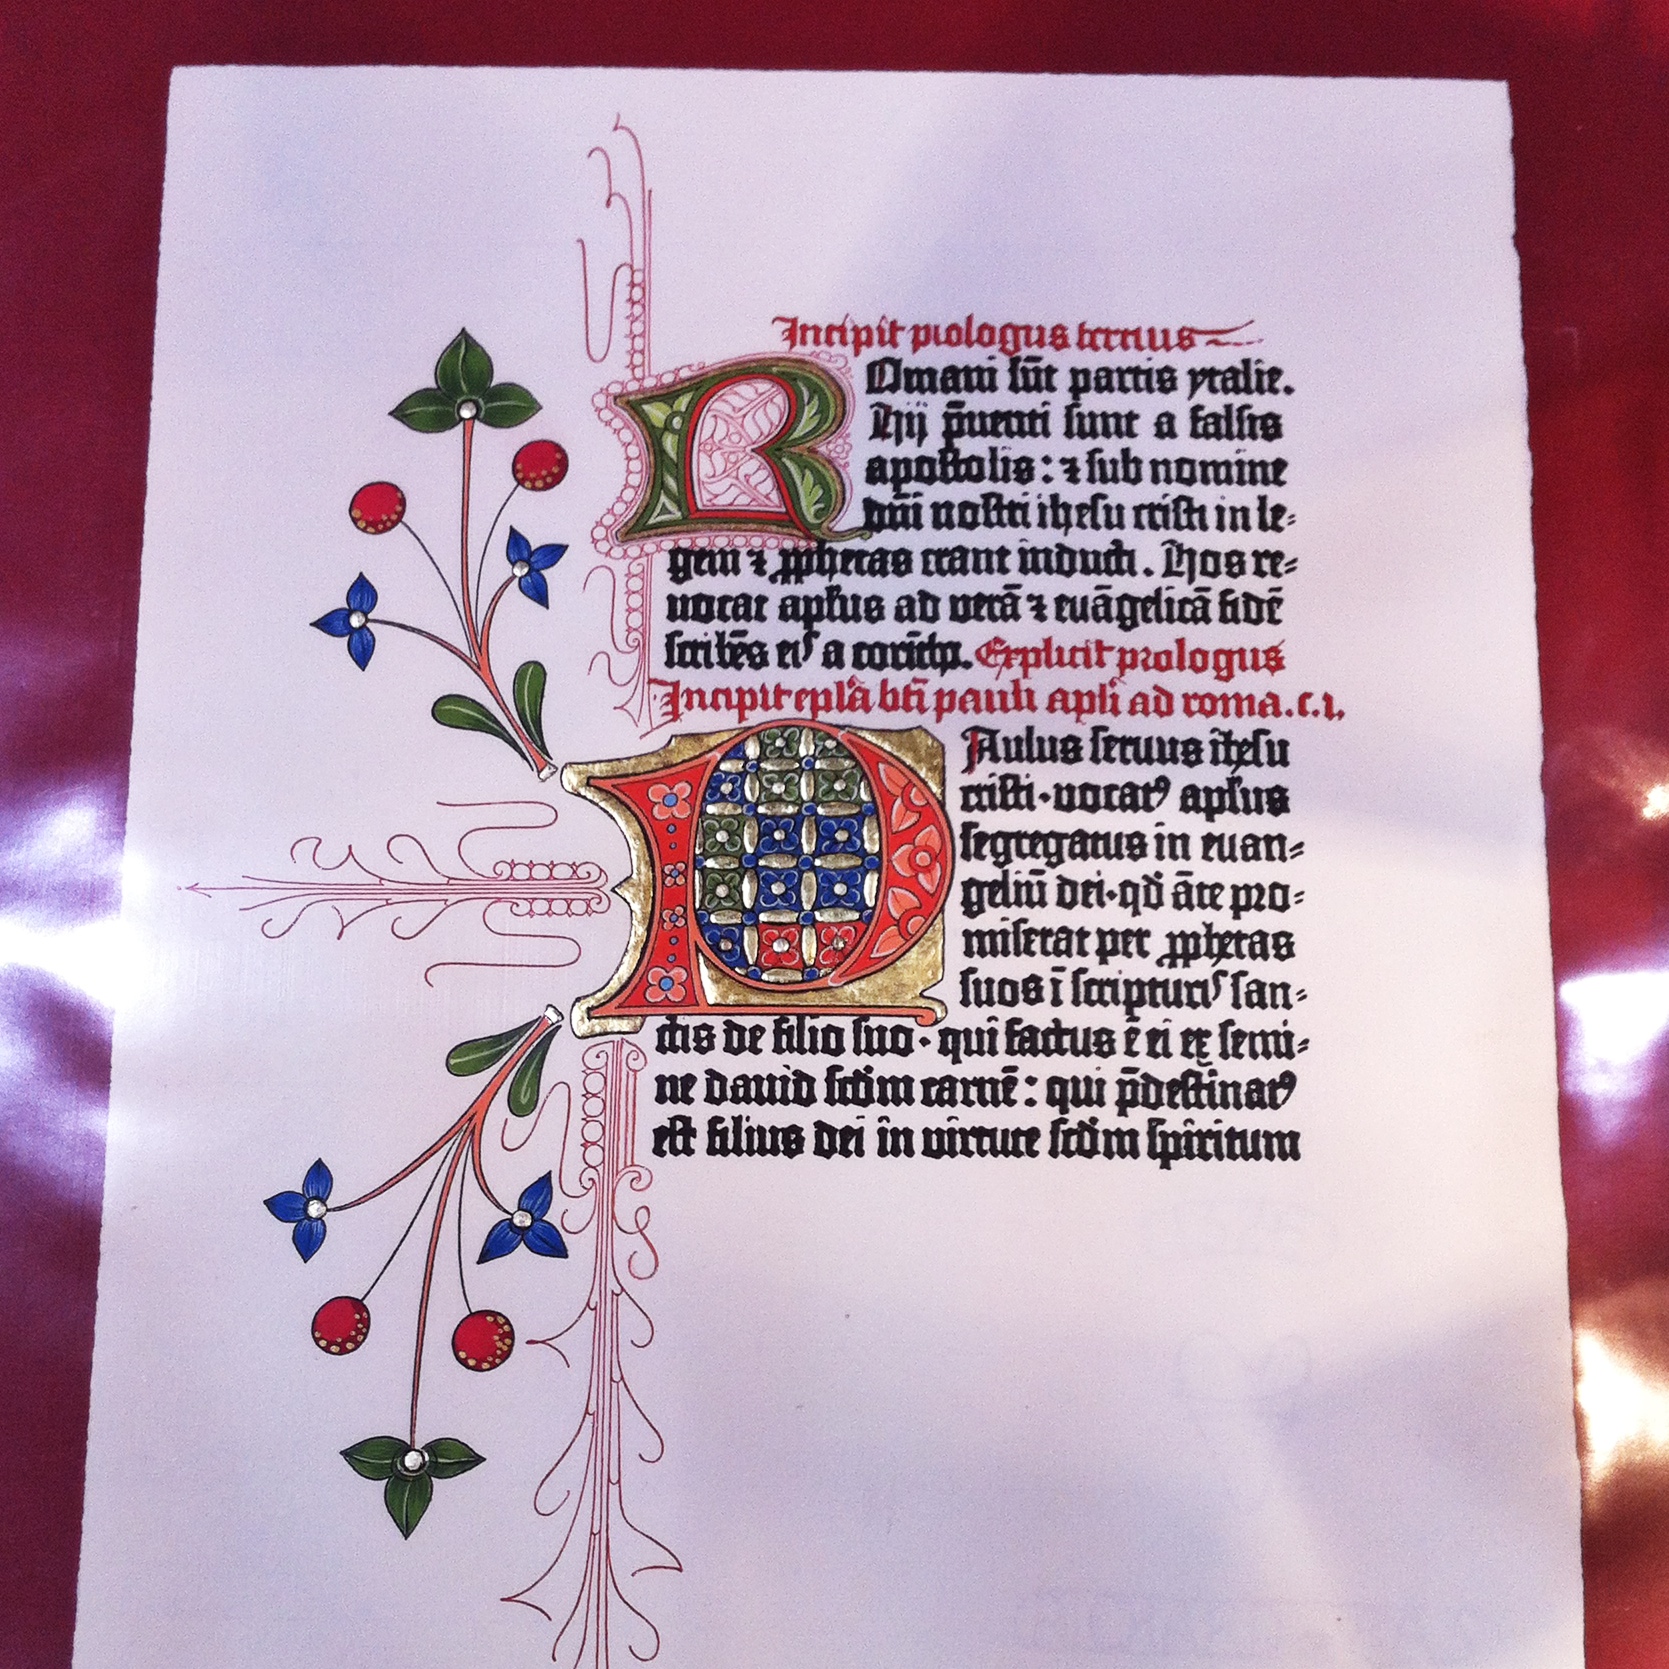 Incipit prologus tercius
Romani sūt partis ytalie.
Hij p̄uenti sunt a falsis
apostolis: ⁊ sub nomine
dn̄i nostri ihesu cristi in le⸗
gem ⁊ ꝓphetas erant inducti. Hos re⸗
uocat apl̓us ad verā ⁊ euāgelicā fidē
scribēs eis a corīntho. Explicit prologus
Incipit epl̓a bt̄i pauli apl̓i ad roma. c. i.
PAulus seruus ih̄esu
cristi·uocatꝰ apl̓us
segregatus in euan⸗
geliū dei·qđ āte pro⸗
miserat per ꝓphetas
suos ī scripturis san⸗
ctis de filio suo·qui factus ē ei ex semi⸗
ne dauid scđm carnē: qui p̄destinatꝰ
est filius dei in uirtute scđm spiritum